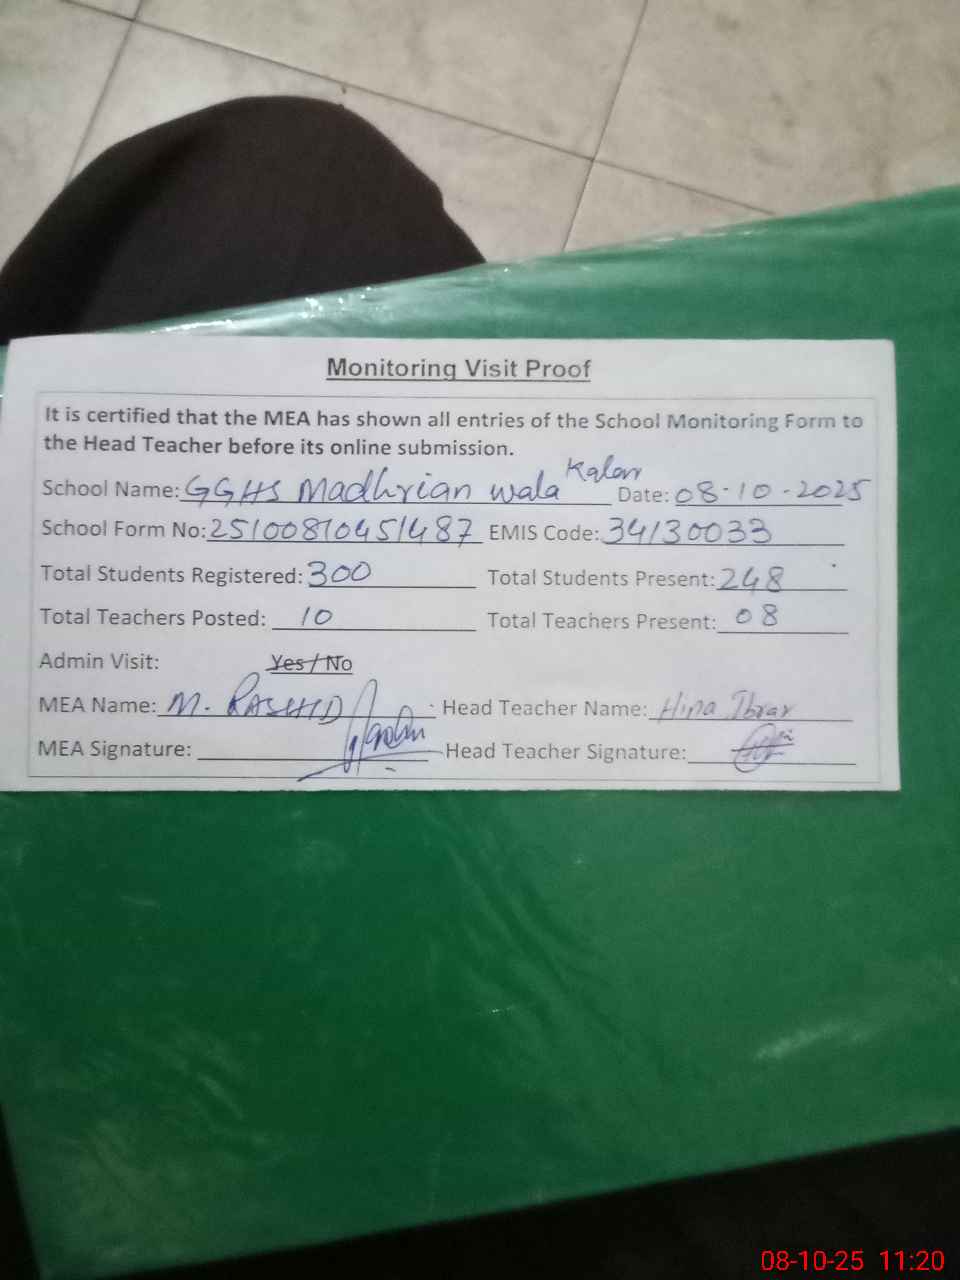 Monitoring Visit Proof
It is certified that the MEA has shown all entries of the School Monitoring Form to
the Head Teacher before its online submission.
School Name: GGHS Madhrian wala Kalan Date: 08-10-2025
School Form No: 25100810451487 EMIS Code: 34130033
Total Students Registered: 300 Total Students Present: 248
Total Teachers Posted: 10 Total Teachers Present: 08
Admin Visit: Yes/No
MEA Name: M. RASHID Head Teacher Name: Hina Ibrar
MEA Signature: Head Teacher Signature:
08-10-25 11:20